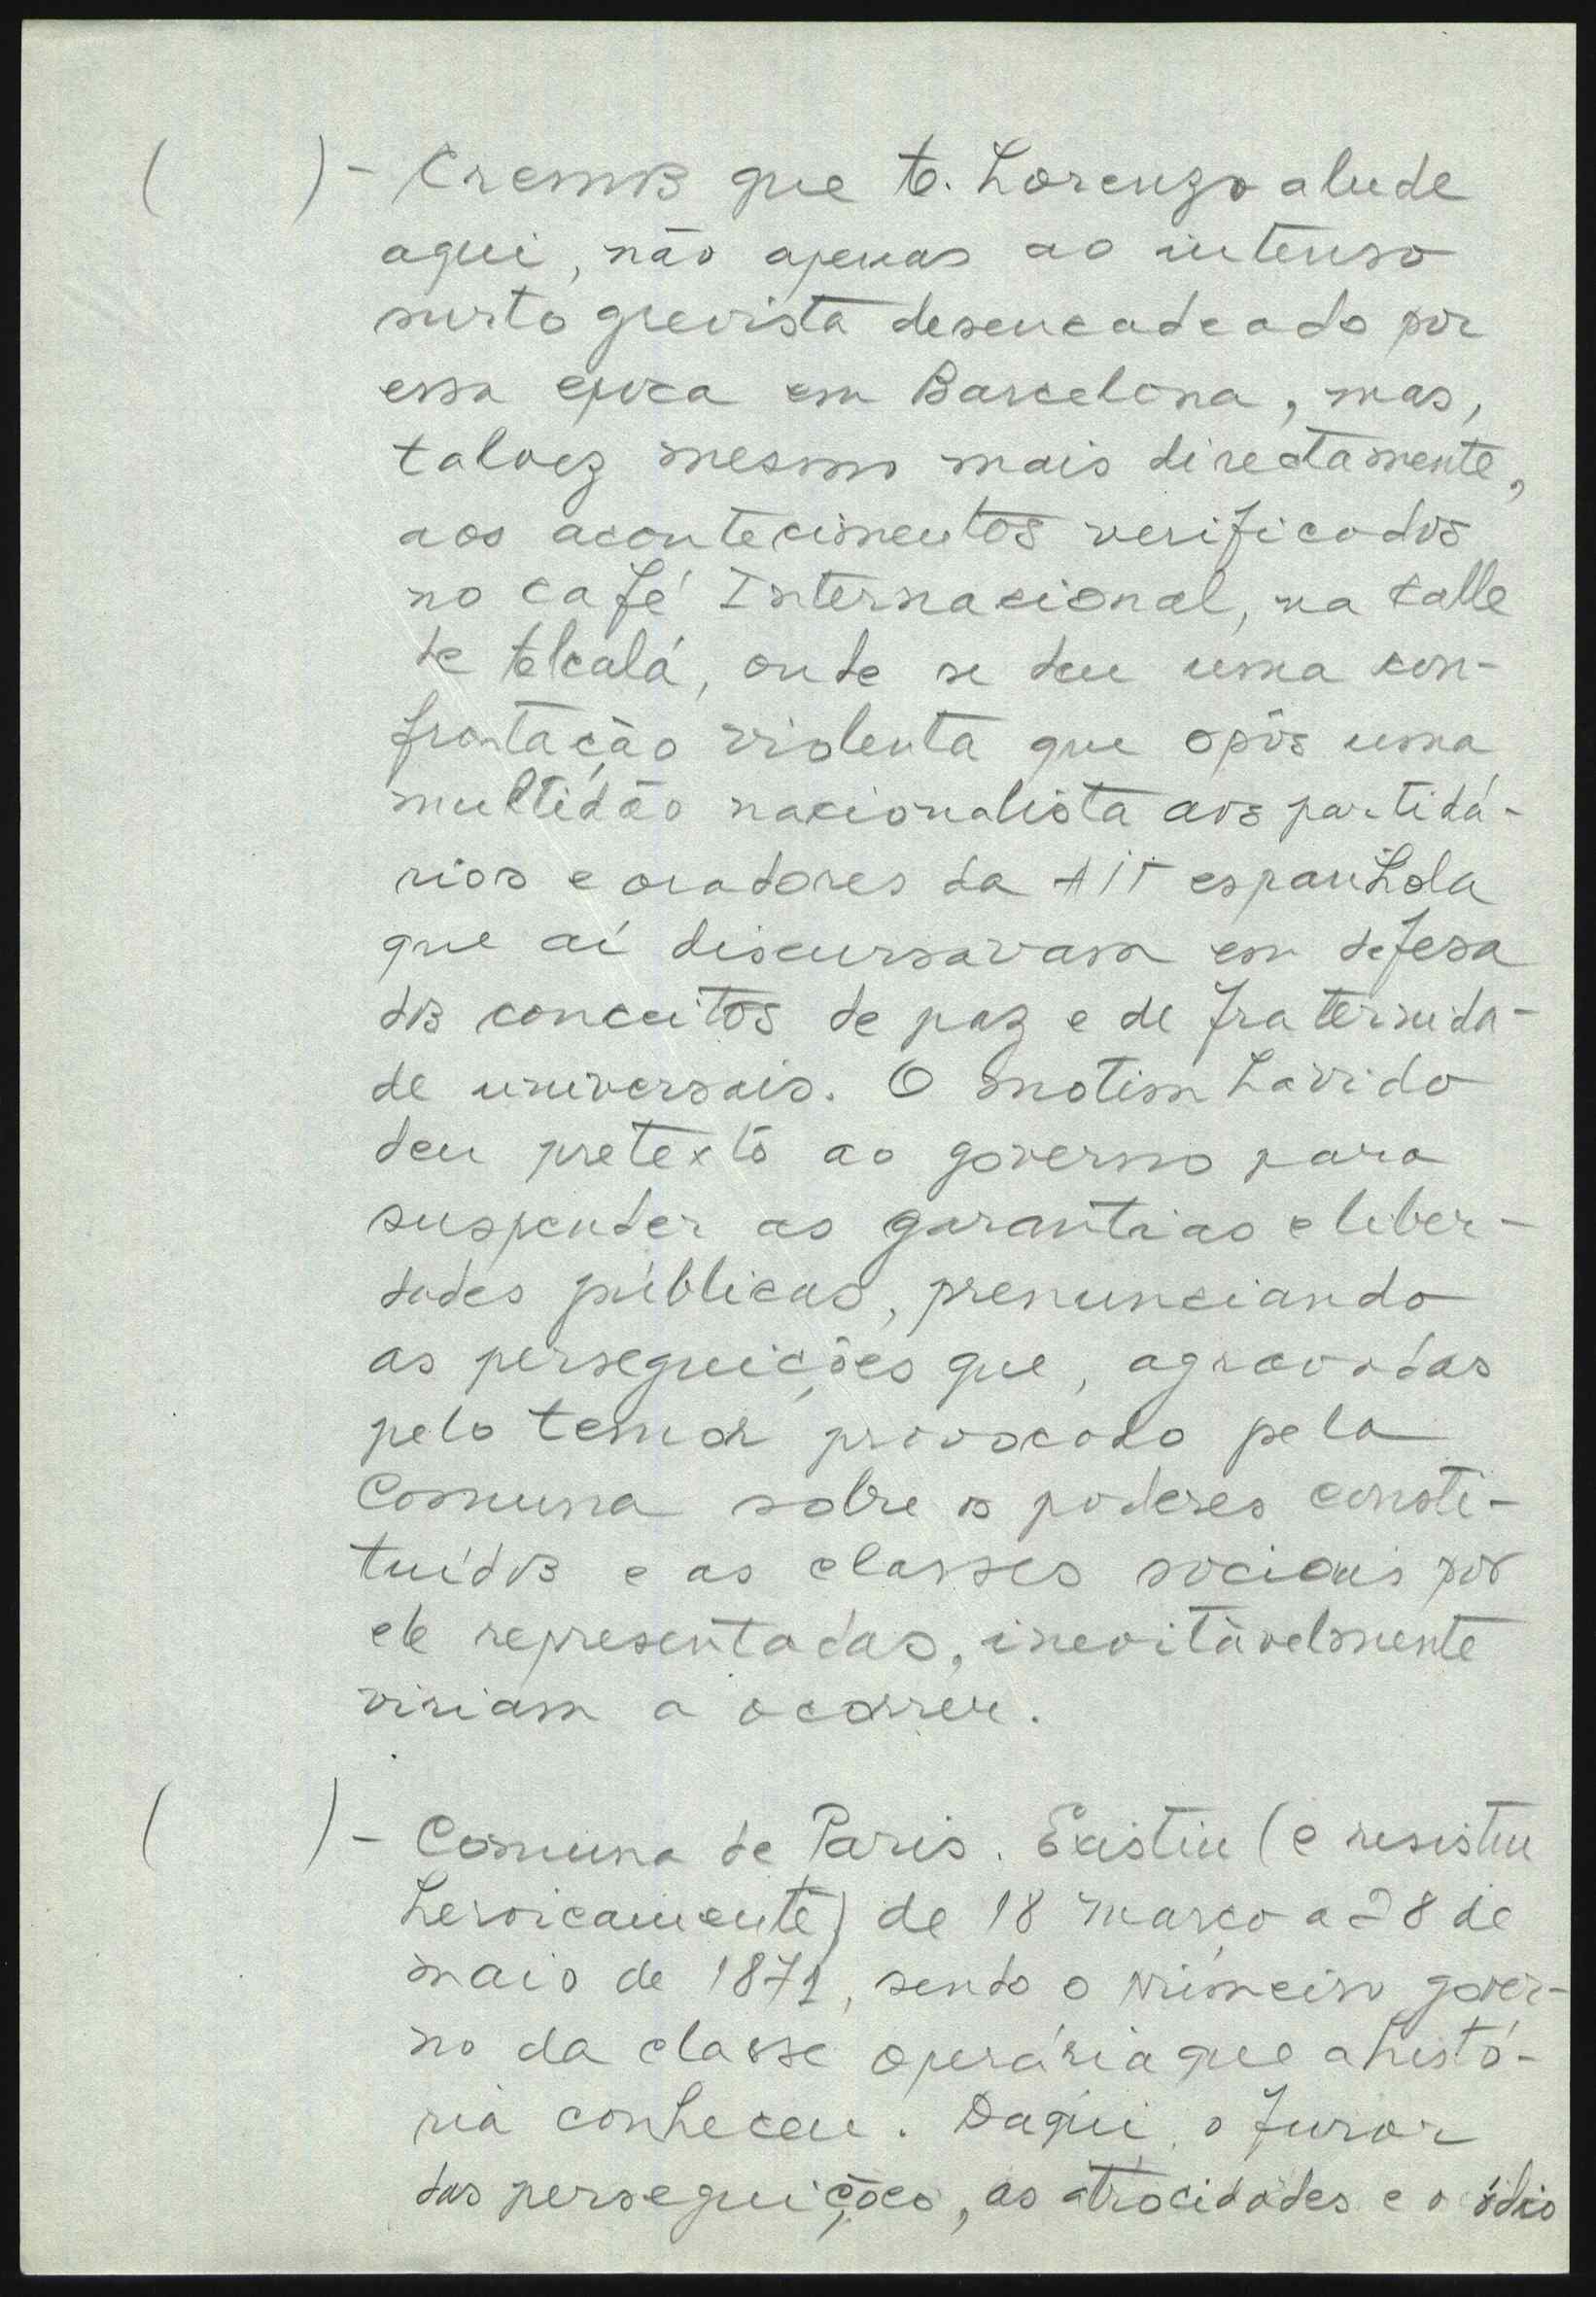 (          ) - Cremos que A. Lorenzo alude
aqui, não apenas ao intenso
surto grevista desencadeado por
essa época em Barcelona, mas,
talvez mesmo mais directamente,
aos acontecimentos verificados
no café Internacional, na calle
de Alcalá, onde se deu uma con-
frontação violenta que opôs uma
multidão nacionalista aos partidá-
rios e oradores da AIT espanhola
que aí discursavam em defesa
dos conceitos de paz e de fraternida-
de universais. O motim havido
deu pretexto ao governo para
suspender as garantias e liber-
dades públicas, prenunciando
as perseguições que, agravadas
pelo temor provocado pela
Comuna sobre os poderes consti-
tuídos e as classes sociais por
ele representadas, inevitàvelmente
viriam a ocorrer.
(          ) - Comuna de Paris. Existiu (e resistiu
heroicamente) de 18 março a 28 de
maio de 1871, sendo o primeiro gover-
no da classe operária que a histó-
ria conheceu. Daqui, o furor
das perseguições, as atrocidades e o ódio